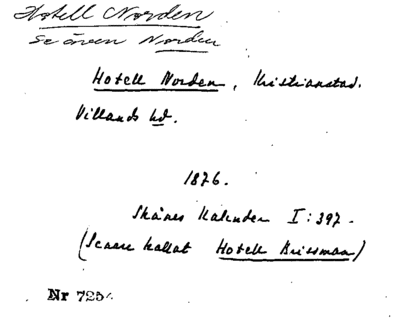 Hotell Norden
Se även Norden
Hotell Norden, Kristianstad.
Villands hd.
1876.
Skånes Kalender I:397.
(Senare kallat Hotell Krissman)
Nr 725